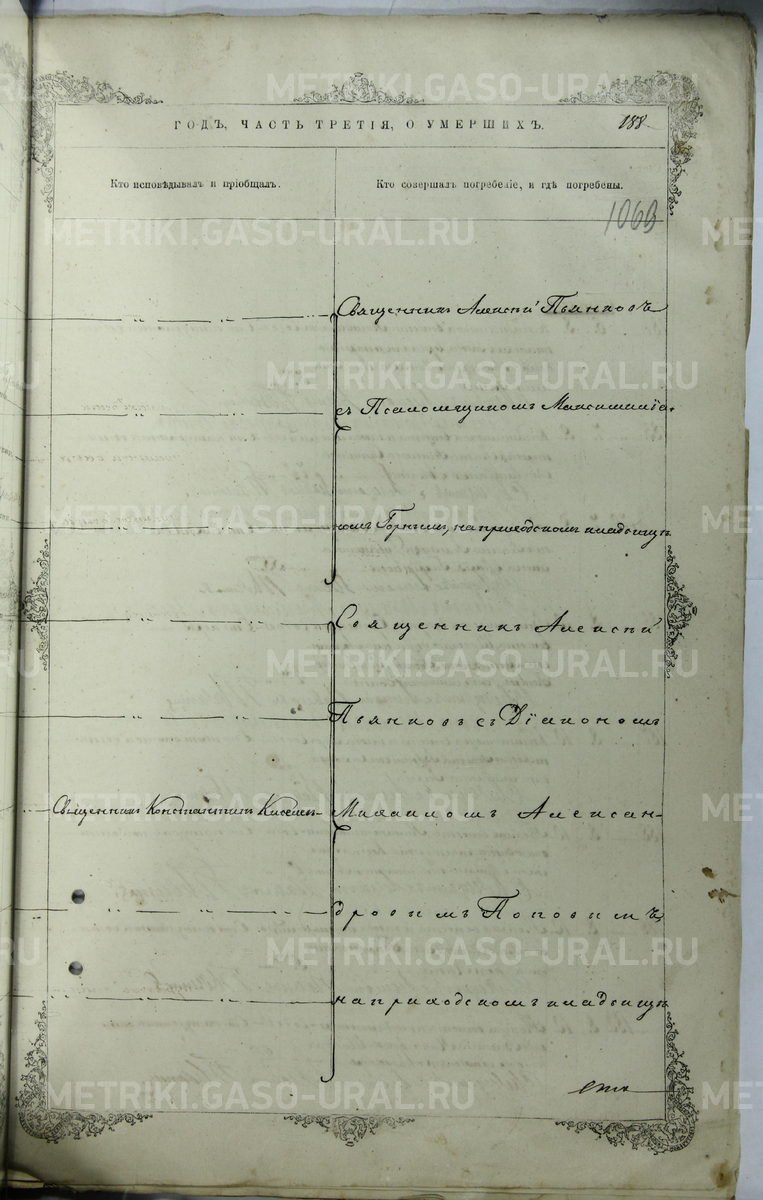 METRIKI.GASO-URAL.RU
ГОДЪ, ЧАСТЬ ТРЕТІЯ, О УМЕРШИХЪ.
188
Кто исповѣдывалъ и пріобщалъ.
Кто совершалъ погребеніе, и гдѣ погребены.
1063
Священникъ Алексѣй Пьянковъ
съ Псаломщикомъ Максимилiа-
номъ Горнымъ, на приходскомъ кладбищѣ
Священникъ Алексѣй
Пьянковъ съ Дiакономъ
Священникъ Константинъ
Михаиломъ Алексан-
дровымъ Поповымъ
на приходскомъ кладбищѣ